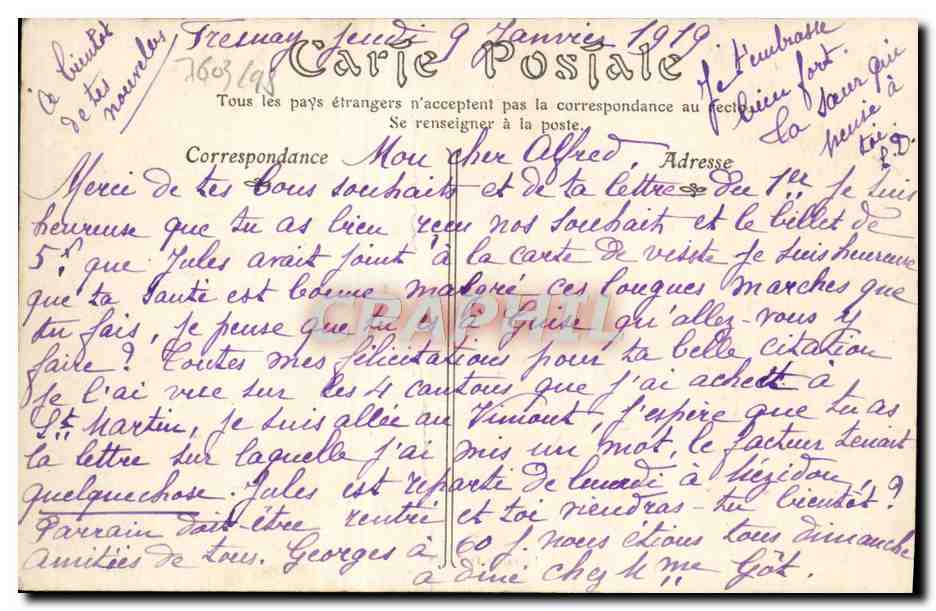 Fresnay Jeudi 9 Janvier 1919
7603/98
Carte Postale
Tous les pays étrangers n'acceptent pas la correspondance au recto
Se renseigner à la poste.
Correspondance
Adresse
Mon cher Alfred,
Merci de tes bons souhaits et de ta lettre du 1er je suis
heureuse que tu as bien reçu nos souhait et le billet de
5f que Jules avait joint à la carte de visite je suis heureuse
que ta santé est bonne malgré ces longues marches que
tu fais, je pense que tu es à Guise qu'allez-vous y
faire ? Toutes mes félicitations pour ta belle citation
je l'ai vue sur les 4 cantons que j'ai acheté à
St Martin, je suis allée au Vimont, j'espère que tu as
la lettre sur laquelle j'ai mis un mot, le facteur tenait
quelquechose. Jules est reparti de lundi à Mézidon,
Parrain doit-être rentré et toi viendras-tu bientôt ?
Amitiées de tous. Georges à 60 f. nous étions tous dimanche
à diné chez Mme Gôt.
A bientôt
de tes
nouvelles
Je t'embrasse
bien fort.
La sœur qui
pense à
toi
CPAPHIL